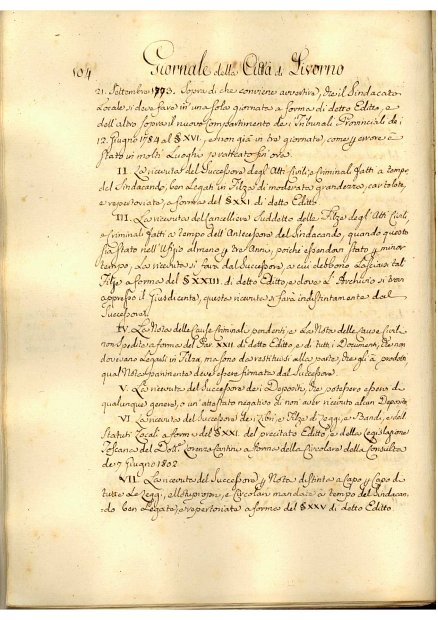 104 Giornale della Città di Livorno
21. Settembre 1793. Sopra di che conviene avvertire, che il Sindacato
Locale si deve fare in una sola giornata a forma di detto Editto, e
dell'altro sopra il nuovo Compartimento dei Tribunali Provinciali de i
12. Giugno 1784 al § XVI, e non già in tre giornate, come p errore è
stato in molti Luoghi pratticato fin'ora.
II. La ricevuta del Successore degl'Atti Civili, e Criminali fatti a tempo
del Sindacando, ben Legati in Filza di moderata grandezza, cartolate,
e repertoriate, a forma del § XXI di detto Editto
III. La ricevuta del Cancelliere Suddetto delle Filze degl'Atti Civili,
e Criminali fatti a tempo dell'Antecessore del Sindacando, quando questo
sia stato nell'Ufizio almeno p tre Anni, poichè essendovi stato p minor
tempo, La ricevuta si farà dal Successore, a cui debbono Lasciarsi tali
Filze a forma del § XXIII. di detto Editto, e dove L'Archivio si trova
appresso il Giusdicente, questa ricevuta si farà indistintamente dal
Successore.
IV. La Nota delle Cause Criminali pendenti, e La Nota delle cause Civili
non spedite a forma del § XXII di detto Editto, e di tutti i Documenti, che non
dovevano Legarsi in Filza, ma sono da restituirsi alla parte, che gli à prodotti
qual Nota parimente deve essere firmata dal Successore.
V. La ricevuta del Successore dei Depositi, che potessero essere di
qualunque genere, o un'attestato negativo di non aver ricevuto alcun Deposito
VI. La ricevuta del Successore dei Libri, e Filze di Leggi, e Bandi, e dal
Statuti Locali a forma del § XXI. del precitato Editto, e della Legislazione
Toscana del Dott. Lorenzo Cantini a forma della Circolare della Consulta
de 7 Giugno 1802.
VII. La ricevuta del Successore p Nota distinta a Capo p Capo di
tutte Le Leggi, e Circolari mandate a tempo del Sindacan,
do ben Legate, e repertoriate a forma del § XXV di detto Editto